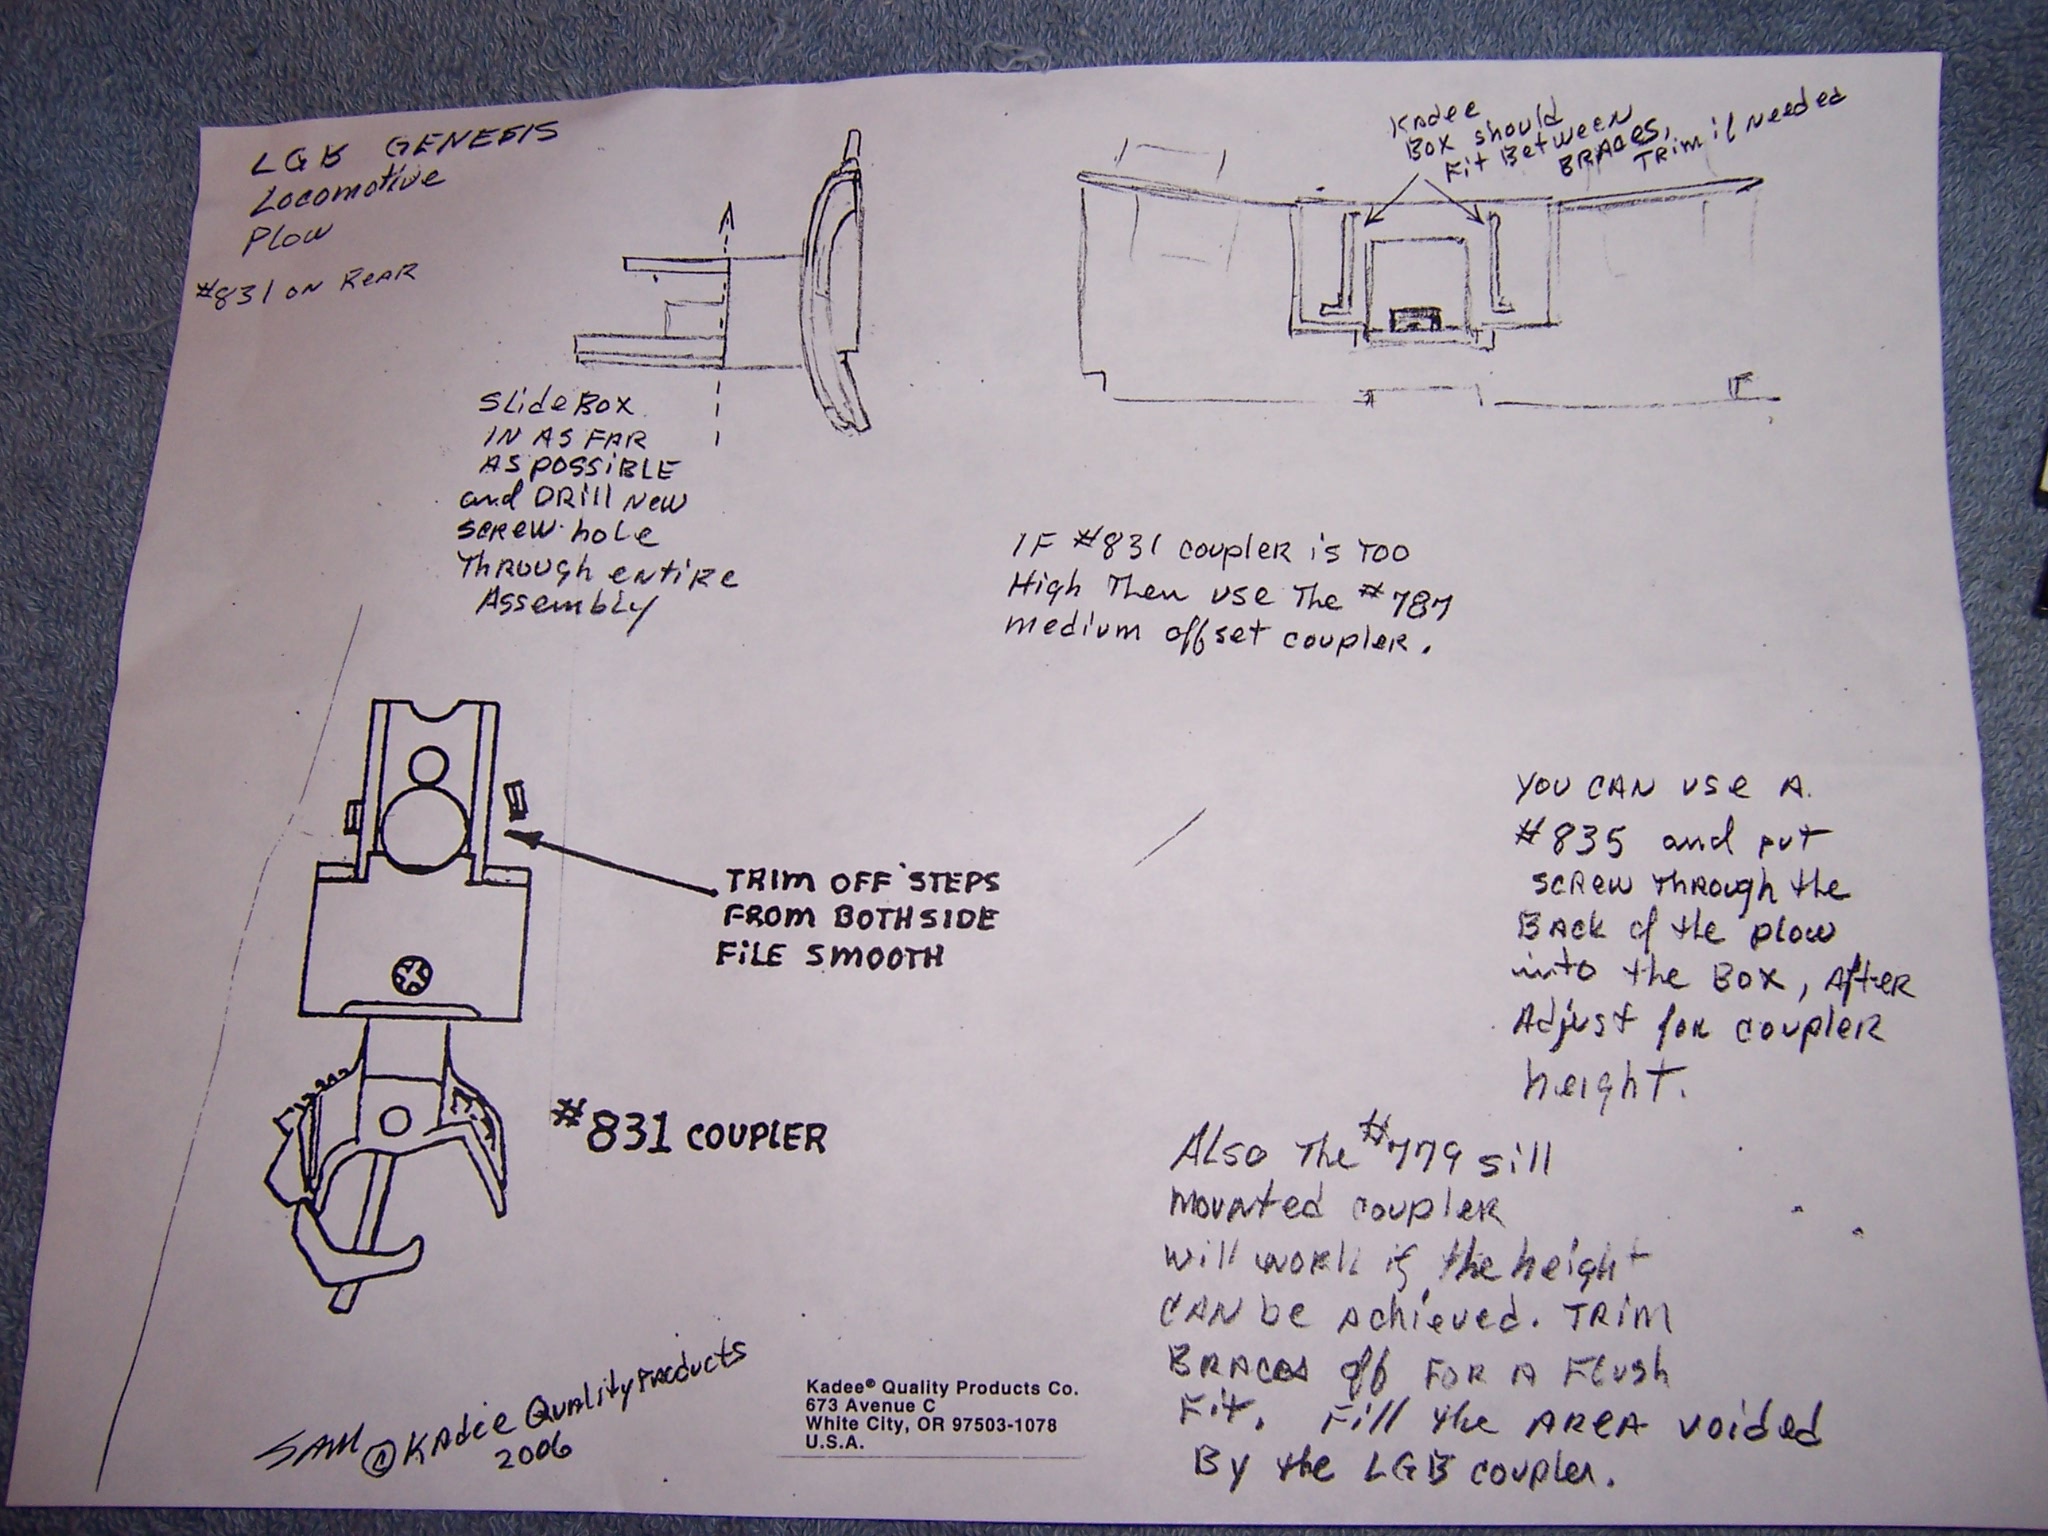 LGB GENESIS
Locomotive
Plow
#831 ON REAR
Kadee
Box should
Fit Between
BRACES,
TRIM if Needed
Slide BOX
IN AS FAR
AS POSSIBLE
and DRill New
screw hole
Through entire
Assembly
IF #831 coupler is TOO
High Then use The #787
medium offset coupler.
TRIM OFF STEPS
FROM BOTH SIDE
FILE SMOOTH
#831 COUPLER
YOU CAN use A
#835 and put
screw through the
Back of the plow
into the Box, After
Adjust for coupler
height.
Also The #779 sill
mounted coupler
will work if the height
CAN be achieved. TRIM
BRACES off FOR A Flush
Fit. Fill the AREA voided
By the LGB coupler.
SAM © Kadee Quality Products
2006
Kadee® Quality Products Co.
673 Avenue C
White City, OR 97503-1078
U.S.A.